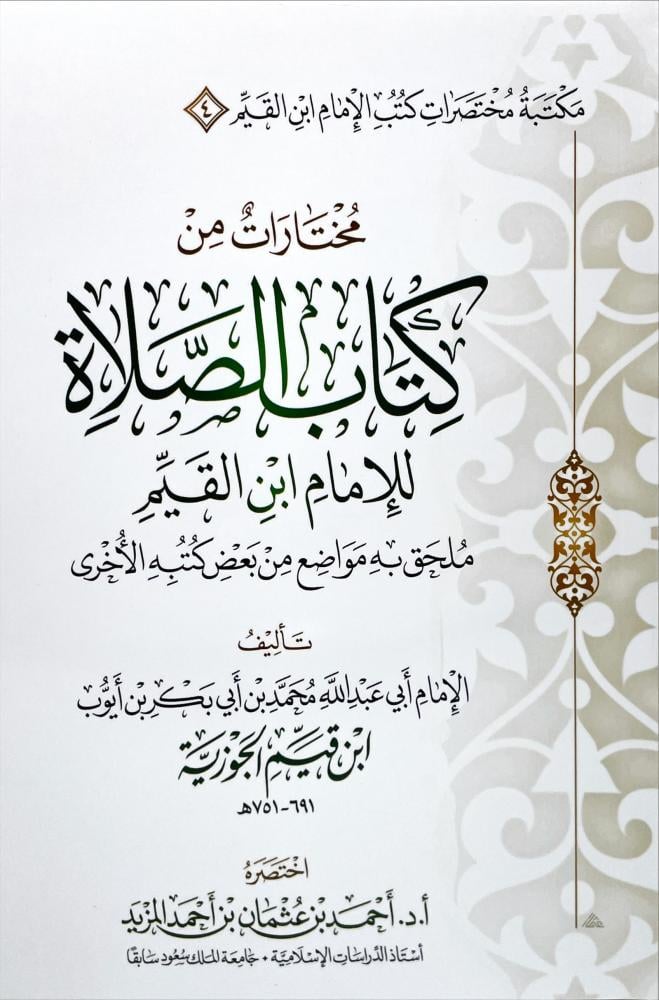 مَكْتَبَةُ مُخْتَصَرَاتِ كُتُبِ الإِمَامِ ابْنِ القَيِّمِ ٤
مُخْتَارَاتٌ مِنْ
كِتَابِ الصَّلَاةِ
لِلإِمَامِ ابْنِ القَيِّمِ
مُلحَق بِهِ مَوَاضِع مِنْ بَعْضِ كُتُبِهِ الأُخْرَى
تَأليفُ
الإِمَامِ أَبي عَبْدِ اللَّهِ مُحَمَّدِ بْنِ أَبي بَكْرِ بْنِ أَيُّوب
ابْنِ قَيِّمِ الجَوْزِيَّة
٦٩١-٧٥١هـ
اخْتَصَرَهُ
أ.د. أَحْمَد بن عُثْمَان بن أَحْمَد المَزْيَد
أُسْتَاذُ الدِّرَاسَاتِ الإِسْلَامِيَّةِ • جَامِعَةُ المَلِك سُعُود سَابِقًا